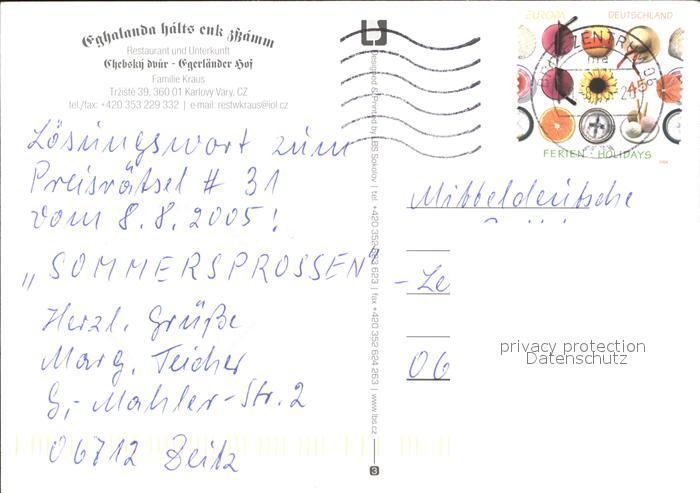 Eghalanda hålts enk zßåmm
Restaurant und Unterkunft
Chebský dvůr - Egerländer Hof
Familie Kraus
Tržiště 39, 360 01 Karlovy Vary, CZ
tel./fax: +420 353 229 332 | e-mail: restwkraus@iol.cz
Lösungswort zum
Preisrätsel # 31
vom 8.8.2005!
„SOMMERSPROSSEN"
Herzl. Grüße
Marg. Teicher
G.-Mahler-Str. 2
06712 Zeitz
Designed & Printed by LBS Sokolov | tel. +420 352 623 623 | fax +420 352 624 263 | www.lbs.cz
3
EUROPA DEUTSCHLAND
45
FERIEN · HOLIDAYS
Mitteldeutsche
- Ze
06
privacy protection
Datenschutz